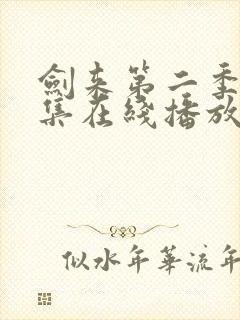 劍来第二季
集在线播放
似水年華流年